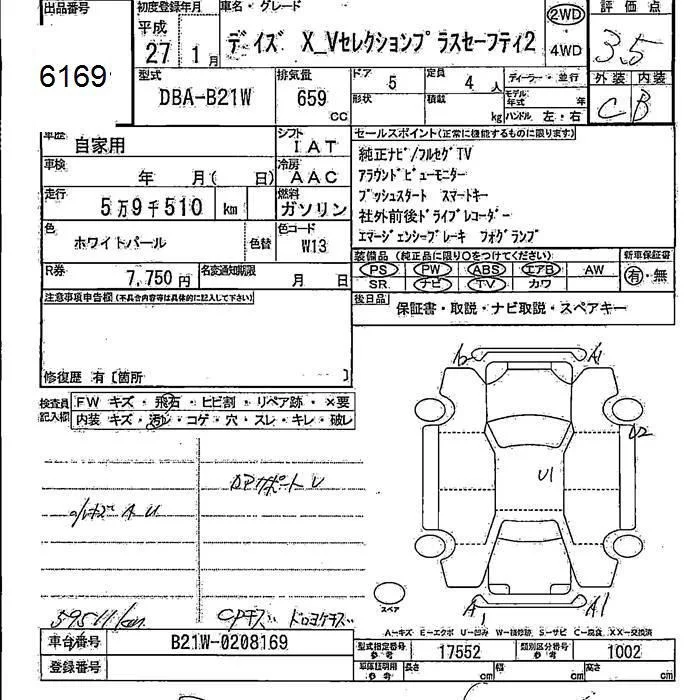 出品番号
6169
初度登録年月
平成
27 1月
車名・グレード
デイズ X_Vセレクションプラスセーフティ2
2WD
4WD
評価点
3.5
型式
DBA-B21W
排気量
659 CC
ドア 5
形状
定員 4 人
積載 kg
ディーラー・並行
モデル年式 年
ハンドル 左・右
外装 内装
C B
車歴 自家用
シフト IAT
車検 年 月( 日)
冷房 AAC
走行 5万9千510 km
燃料 ガソリン
色 ホワイトパール
色替
色コード W13
R券 7,750円
名変通知期限 月 日
セールスポイント(正常に機能するものに限ります)
純正ナビ/フルセグTV
アラウンドビューモニター
プッシュスタート スマートキー
社外前後ドライブレコーダー
エマージェンシーブレーキ フォグランプ
装備品(純正品に限り○をつけてください)
新車保証書
PS PW ABS エアB AW
SR ナビ TV カワ
有・無
後日品 保証書・取説・ナビ取説・スペアキー
注意事項申告欄(不具合内容等は具体的に記入して下さい)
修復歴 有〔箇所 〕
検査員記入欄
FW キズ・飛石・ヒビ割・リペア跡・×要
内装 キズ・汚れ・コゲ・穴・スレ・キレ・破レ
A1
U2
U1
DPサポートU
59511km
CPキズ ドロヨケキズ
A A1
スペア
A-キズ E-エクボ U-凹み W-補修跡 S-サビ C-腐食 XX-交換済
車台番号 B21W-0208169
型式指定番号 参考 17552
類別区分番号 参考 1002
登録番号
車庫証明用 参考 長さ cm 幅 cm 高さ cm